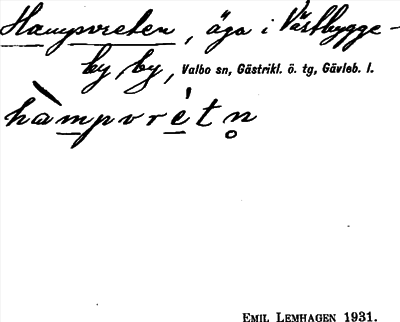 Hampvreten, äga i Västbygge-
by by, Valbo sn, Gästrikl. ö. tg, Gävleb. l.
hàmpvrét n̥
EMIL LEMHAGEN 1931.